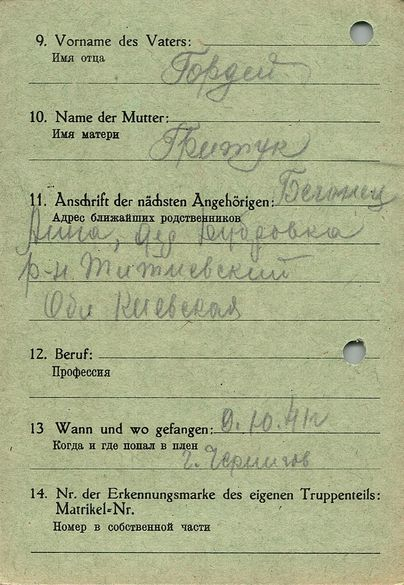 9. Vorname des Vaters:
Имя отца
Гордей
10. Name der Mutter:
Имя матери
Грищук
11. Anschrift der nächsten Angehörigen:
Адрес ближайших родственников
Анна, дер Бубровка
р-н Титиевский
Обл Киевская
12. Beruf:
Профессия
13 Wann und wo gefangen: 9.10.41г
Когда и где попал в плен
г. Чернигов
14. Nr. der Erkennungsmarke des eigenen Truppenteils:
Matrikel=Nr.
Номер в собственной части